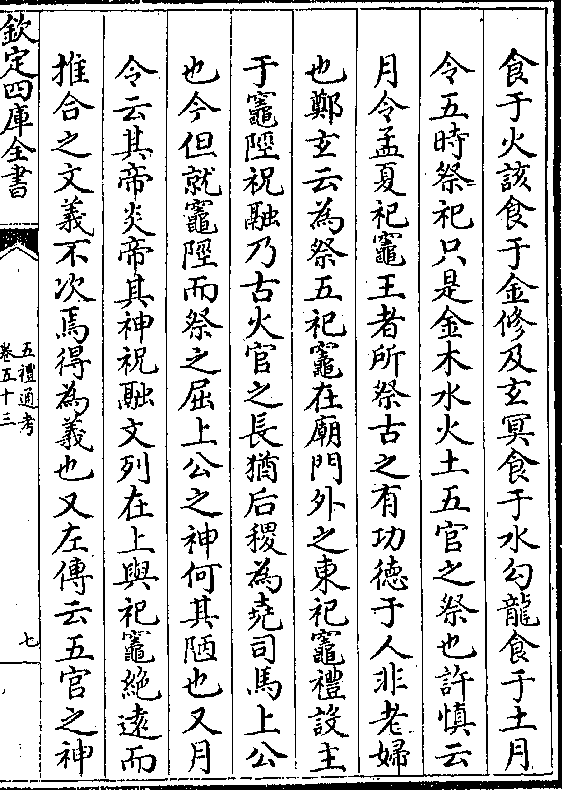 食于火該食于金修及玄冥食于水勾龍食于土月
令五時祭祀只是金木水火土五官之祭也許慎云
月令孟夏祀竈王者所祭古之有功徳于人非老婦
也鄭玄云為祭五祀竈在廟門外之東祀竈禮設主
于竈陘祝融乃古火官之長猶后稷為堯司馬上公
也今但就竈陘而祭之屈上公之神何其陋也又月
令云其帝炎帝其神祝融文列在上與祀竈絶遠而
推合之文義不次焉得為義也又左傳云五官之神
欽定四庫全書
五禮通考
卷五十三
七